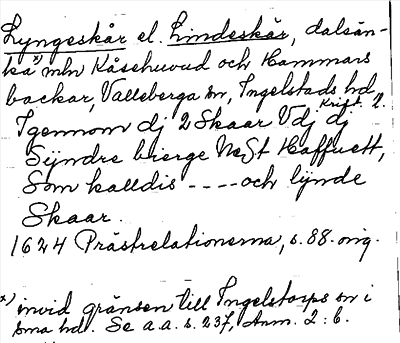 Lyngeskår el. Lindeskår, dalsän-
ka x) mln Kåsehuvud och Hammars
backar, Valleberga sn, Ingelstads hd,
Krist. l.
Igennom dj 2 Skaar Vdj dj
Sÿndre bierge Nest Haffuett,
Som kalldis ---- och lÿnde
Skaar.
1624 Prästrelationerna, s. 88. orig.
x) invid gränsen till Ingelstorps sn i
sma hd. Se a.a. s. 237, Anm. 2 : 6.